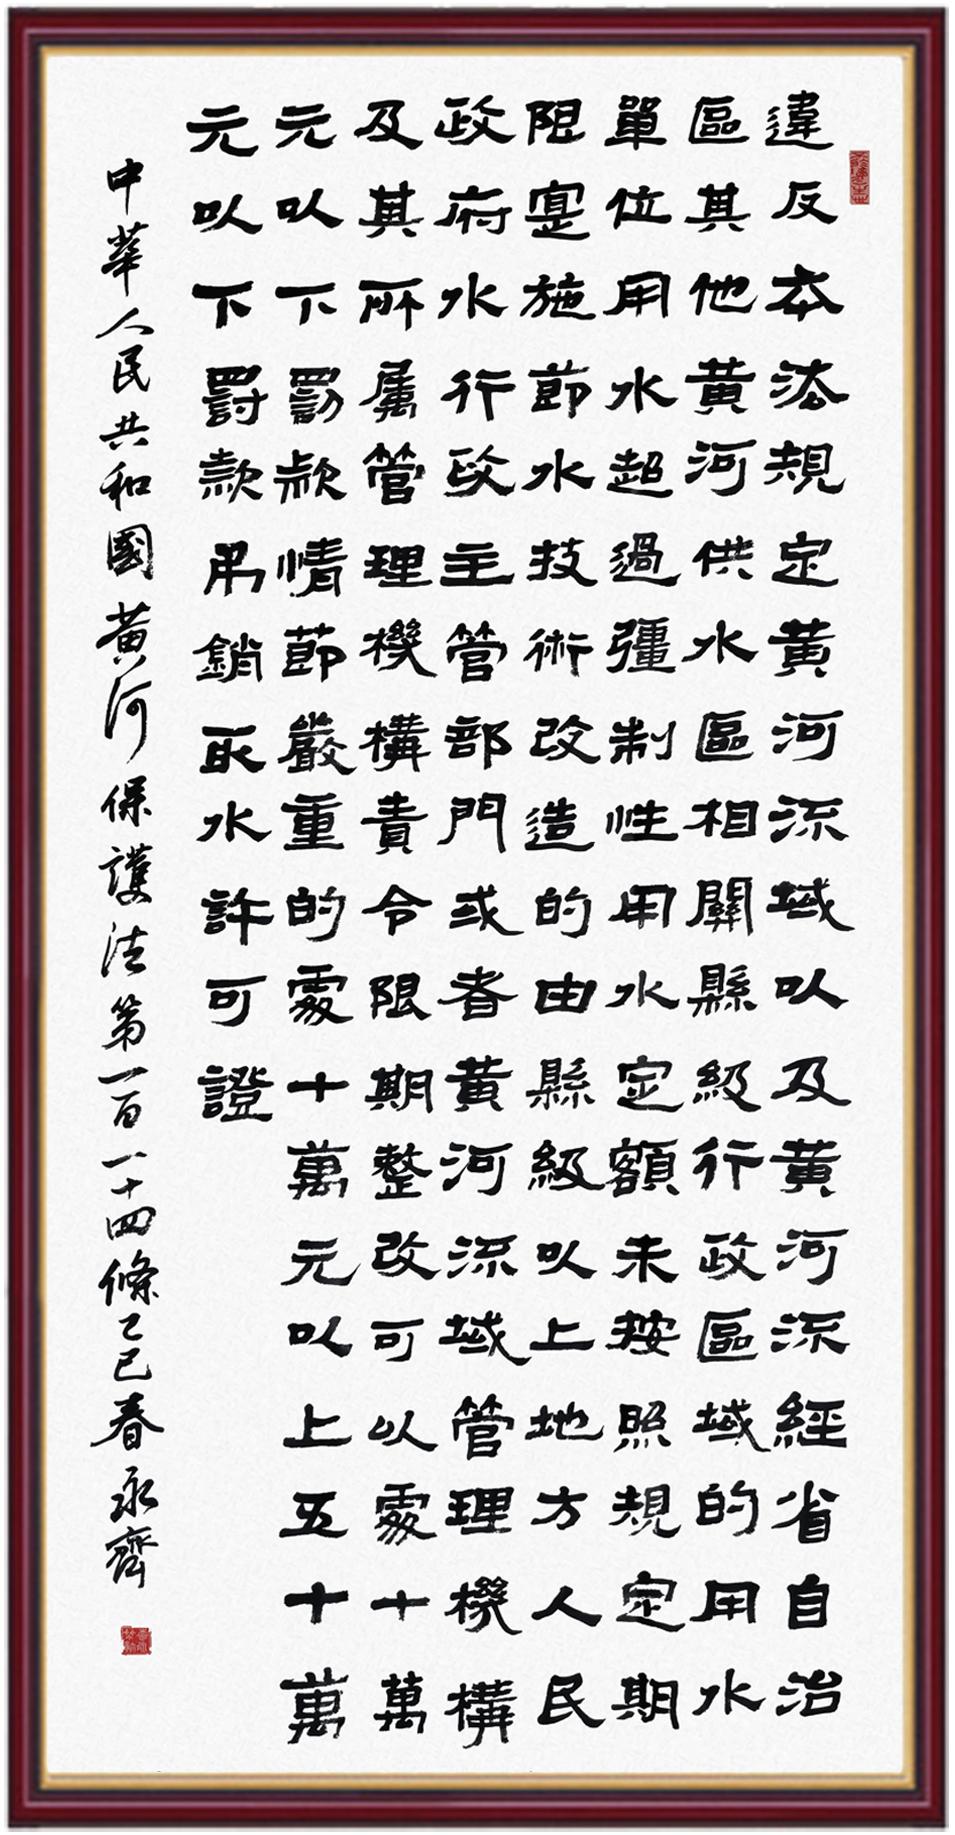 違反本法規定黃河流域以及黃河流經省自治
區其他黃河供水區相關縣級行政區域的用水
單位用水超過彊制性用水定額未按照規定期
限寔施節水技術改造的由縣級以上地方人民
政府水行政主管部門或者黃河流域管理機構
及其所属管理機構責令限期整改可以處十萬
元以下罰款情節嚴重的處十萬元以上五十萬
元以下罰款吊銷取水許可證
中華人民共和國黃河保護法第一百一十四條乙巳春永齊